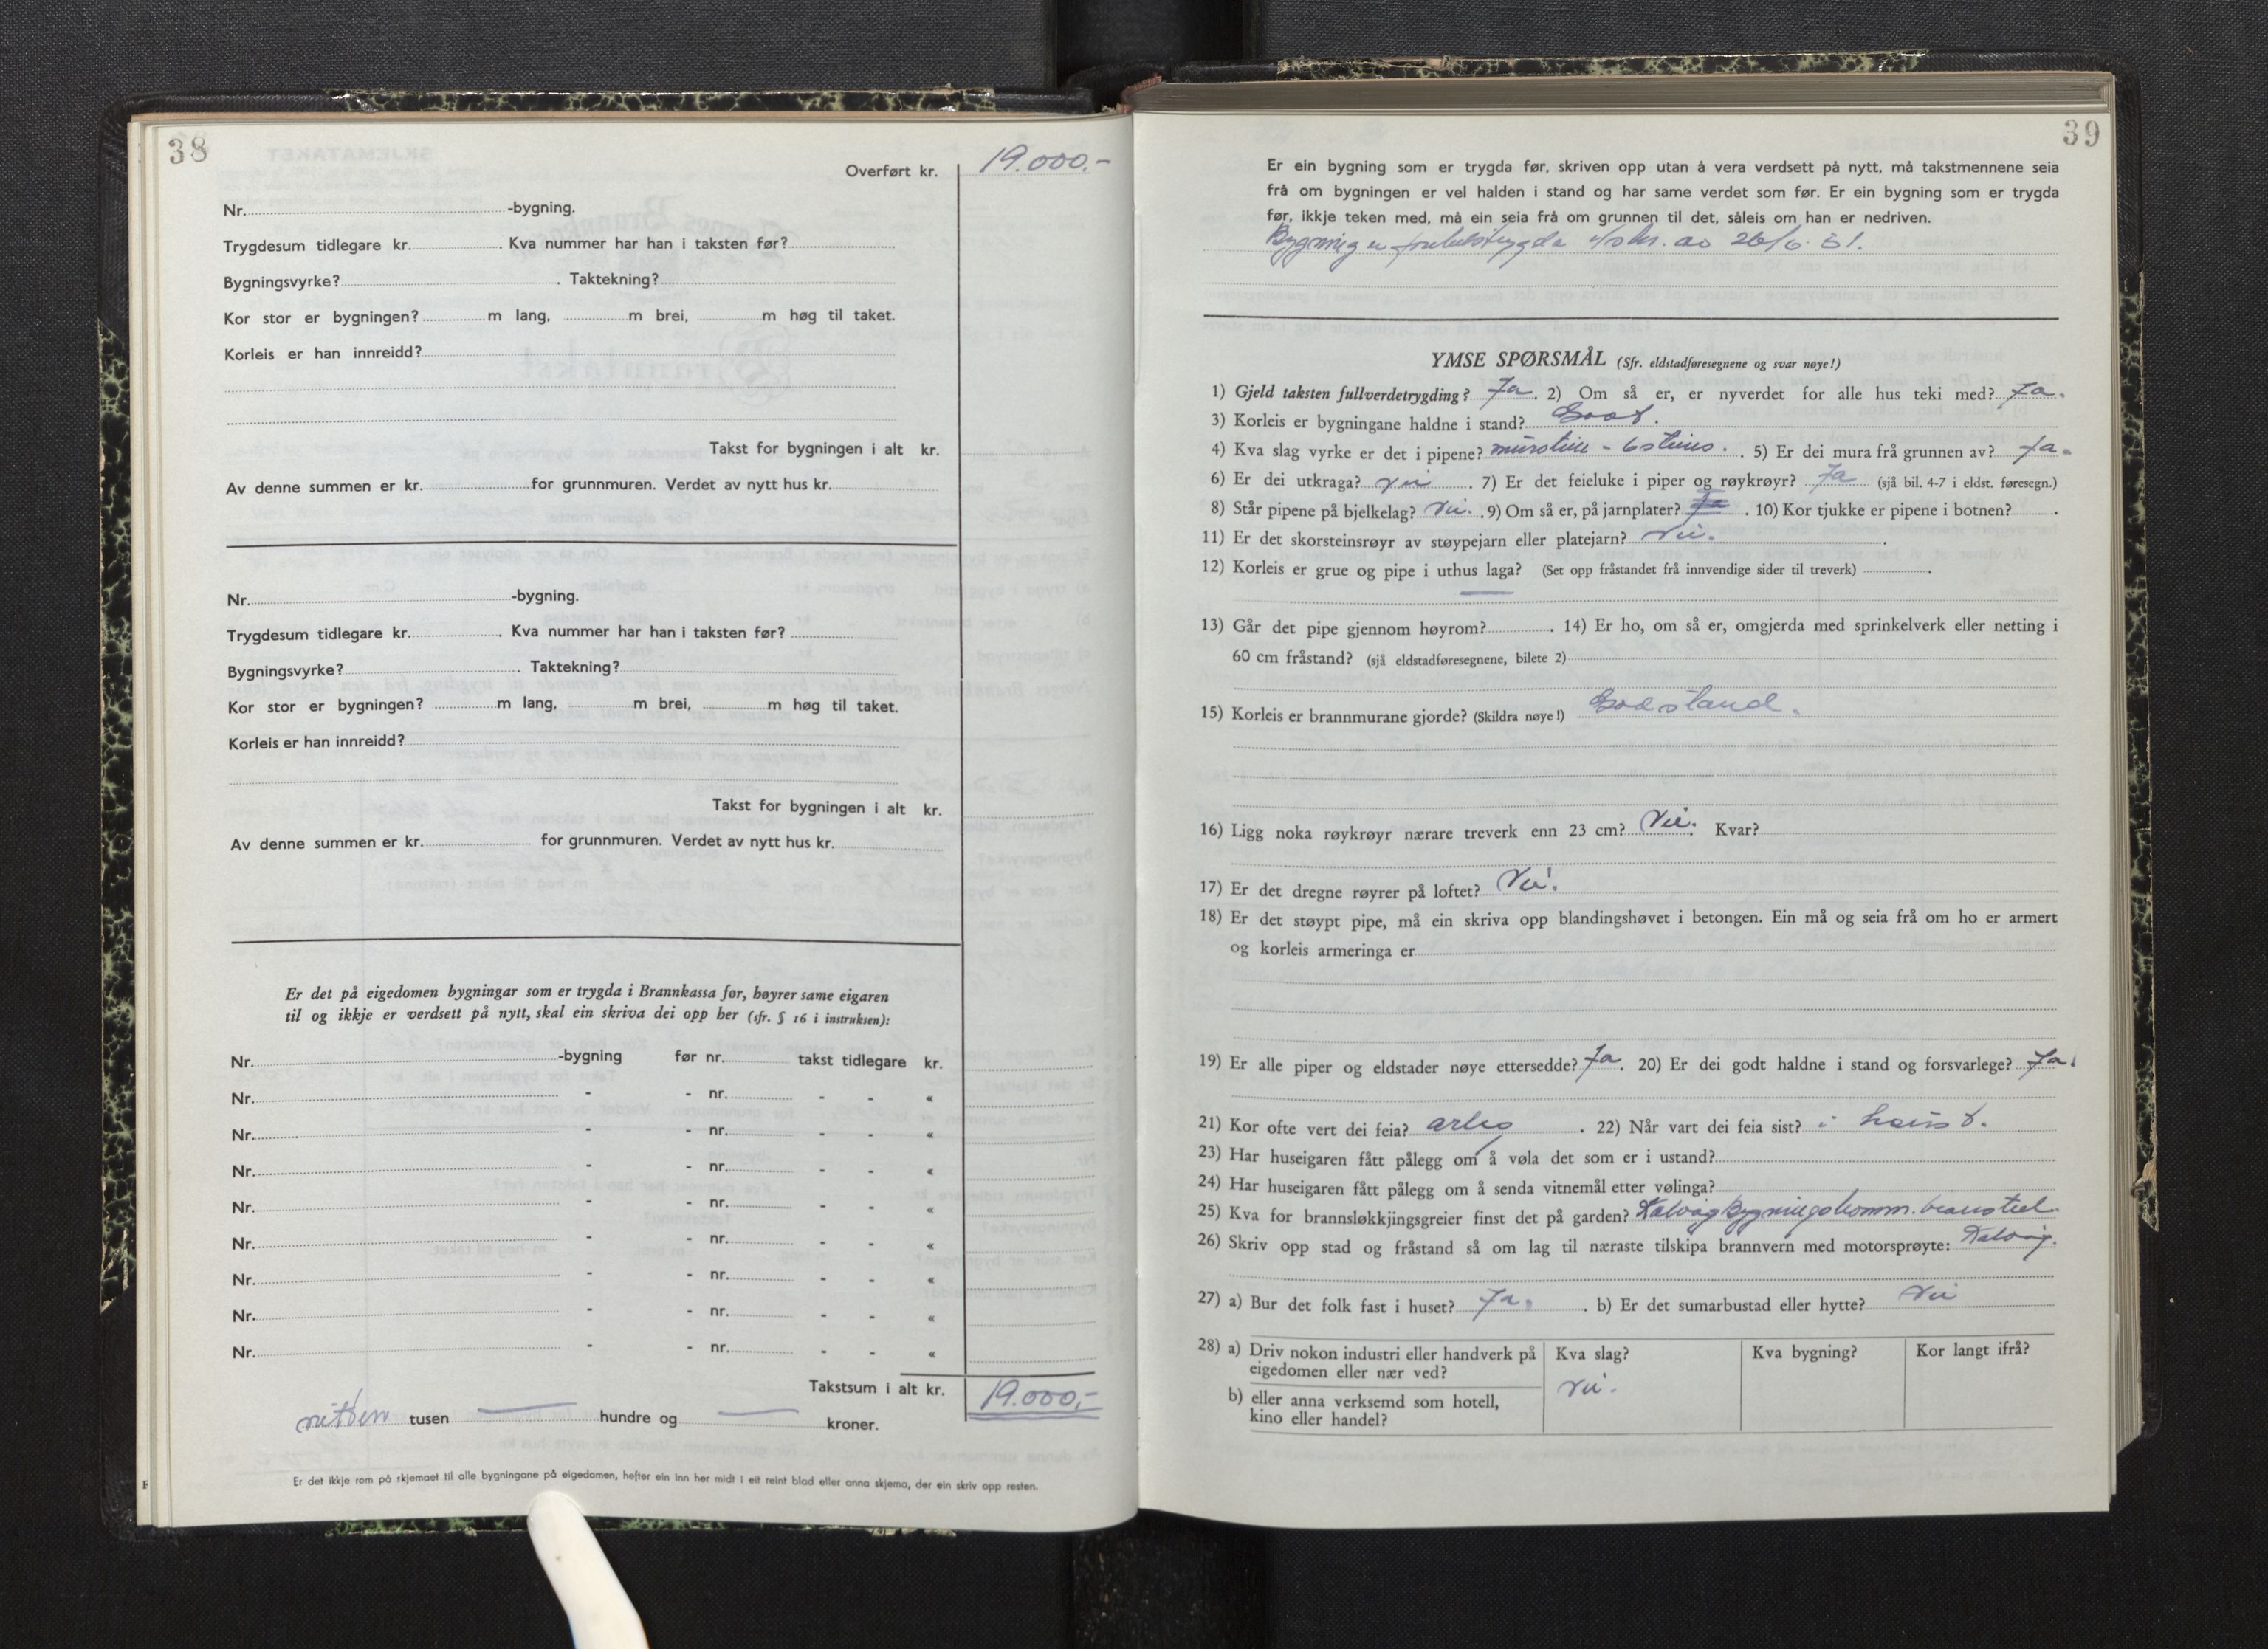 38
Overført kr. 19.000.-
Nr. -bygning.
Trygdesum tidlegare kr. . Kva nummer har han i taksten før?
Bygningsvyrke? . Taktekning?
Kor stor er bygningen? m lang, m brei, m høg til taket.
Korleis er han innreidd?
Takst for bygningen i alt kr.
Av denne summen er kr. for grunnmuren. Verdet av nytt hus kr.
Nr. -bygning.
Trygdesum tidlegare kr. . Kva nummer har han i taksten før?
Bygningsvyrke? . Taktekning?
Kor stor er bygningen? m lang, m brei, m høg til taket.
Korleis er han innreidd?
Takst for bygningen i alt kr.
Av denne summen er kr. for grunnmuren. Verdet av nytt hus kr.
Er det på eigedomen bygningar som er trygda i Brannkassa før, høyrer same eigaren
til og ikkje er verdsett på nytt, skal ein skriva dei opp her (sfr. § 16 i instruksen):
Nr. -bygning før nr. takst tidlegare kr.
Nr. - - nr. - - «
Nr. - - nr. - - «
Nr. - - nr. - - «
Nr. - - nr. - - «
Nr. - - nr. - - «
Nr. - - nr. - - «
Nr. - - nr. - - «
Nr. - - nr. - - «
Takstsum i alt kr. 19.000,-
nitten tusen — hundre og — kroner.
Er det ikkje rom på skjemaet til alle bygningane på eigedomen, hefter ein inn her midt i eit reint blad eller anna skjema, der ein skriv opp resten.
39
Er ein bygning som er trygda før, skriven opp utan å vera verdsett på nytt, må takstmennene seia
frå om bygningen er vel halden i stand og har same verdet som før. Er ein bygning som er trygda
før, ikkje teken med, må ein seia frå om grunnen til det, såleis om han er nedriven.
Bygning er av 26/6 51.
YMSE SPØRSMÅL (Sfr. eldstadføresegnene og svar nøye!)
1) Gjeld taksten fullverdetrygding? Ja . 2) Om så er, er nyverdet for alle hus teki med? Ja.
3) Korleis er bygningane haldne i stand? Godt.
4) Kva slag vyrke er det i pipene? murstein - 6 steins. . 5) Er dei mura frå grunnen av? Ja.
6) Er dei utkraga? nei . 7) Er det feieluke i piper og røykrøyr? Ja (sjå bil. 4-7 i eldst. føresegn.)
8) Står pipene på bjelkelag? Nei. . 9) Om så er, på jarnplater? Ja . 10) Kor tjukke er pipene i botnen? .
11) Er det skorsteinsrøyr av støypejarn eller platejarn? Nei. .
12) Korleis er grue og pipe i uthus laga? (Set opp fråstandet frå innvendige sider til treverk) .
—
13) Går det pipe gjennom høyrom? . 14) Er ho, om så er, omgjerda med sprinkelverk eller netting i
60 cm fråstand? (sjå eldstadføresegnene, bilete 2)
15) Korleis er brannmurane gjorde? (Skildra nøye!) God stand.
16) Ligg noka røykrøyr nærare treverk enn 23 cm? Nei. Kvar?
17) Er det dregne røyrer på loftet? Nei.
18) Er det støypt pipe, må ein skriva opp blandingshøvet i betongen. Ein må og seia frå om ho er armert
og korleis armeringa er
19) Er alle piper og eldstader nøye ettersedde? Ja . 20) Er dei godt haldne i stand og forsvarlege? Ja.
21) Kor ofte vert dei feia? årleg . 22) Når vart dei feia sist? i haust.
23) Har huseigaren fått pålegg om å vøla det som er i ustand?
24) Har huseigaren fått pålegg om å senda vitnemål etter vølinga?
25) Kva for brannsløkkjingsgreier finst det på garden? Kalvåg Bygningskomm.
26) Skriv opp stad og fråstand så om lag til næraste tilskipa brannvern med motorsprøyte: Kalvåg.
27) a) Bur det folk fast i huset? Ja. . b) Er det sumarbustad eller hytte? Nei
28) a) Driv nokon industri eller handverk på
eigedomen eller nær ved?
b) eller anna verksemd som hotell,
kino eller handel?
Kva slag?
nei.
Kva bygning?
Kor langt ifrå?